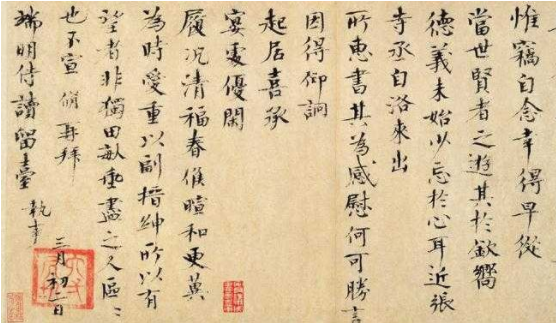 惟竊自念幸得早從
當世賢者之遊其於欽嚮
德義未始少忘於心耳近張
寺丞自洛來出
所惠書其為感慰何可勝言
因得仰詗
起居喜承
宴處優閑
履況清福春候暄和更冀
為時愛重以副搢紳所以有
望者非獨田畝垂盡之人區區
也不宣脩再拜
端明侍讀留臺執事
三月初二日